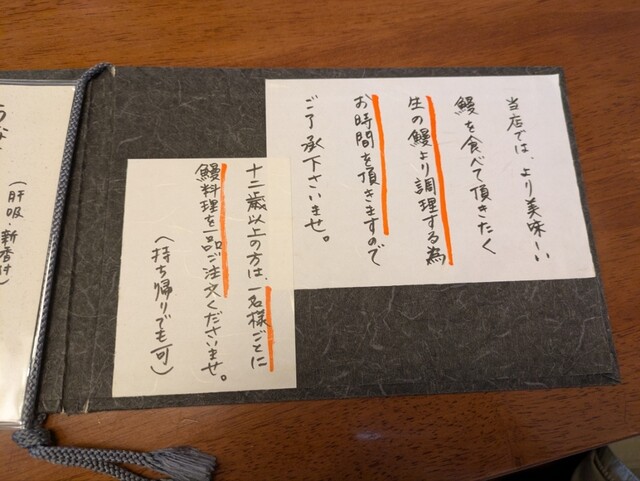 当店では、より美味しい
鰻を食べて頂きたく
生の鰻より調理する為
お時間を頂きますので
ご了承下さいませ。
十二歳以上の方は、一名様ごとに
鰻料理を一品ご注文くださいませ。
(持ち帰りでも可)
うな
(肝吸・新香付)